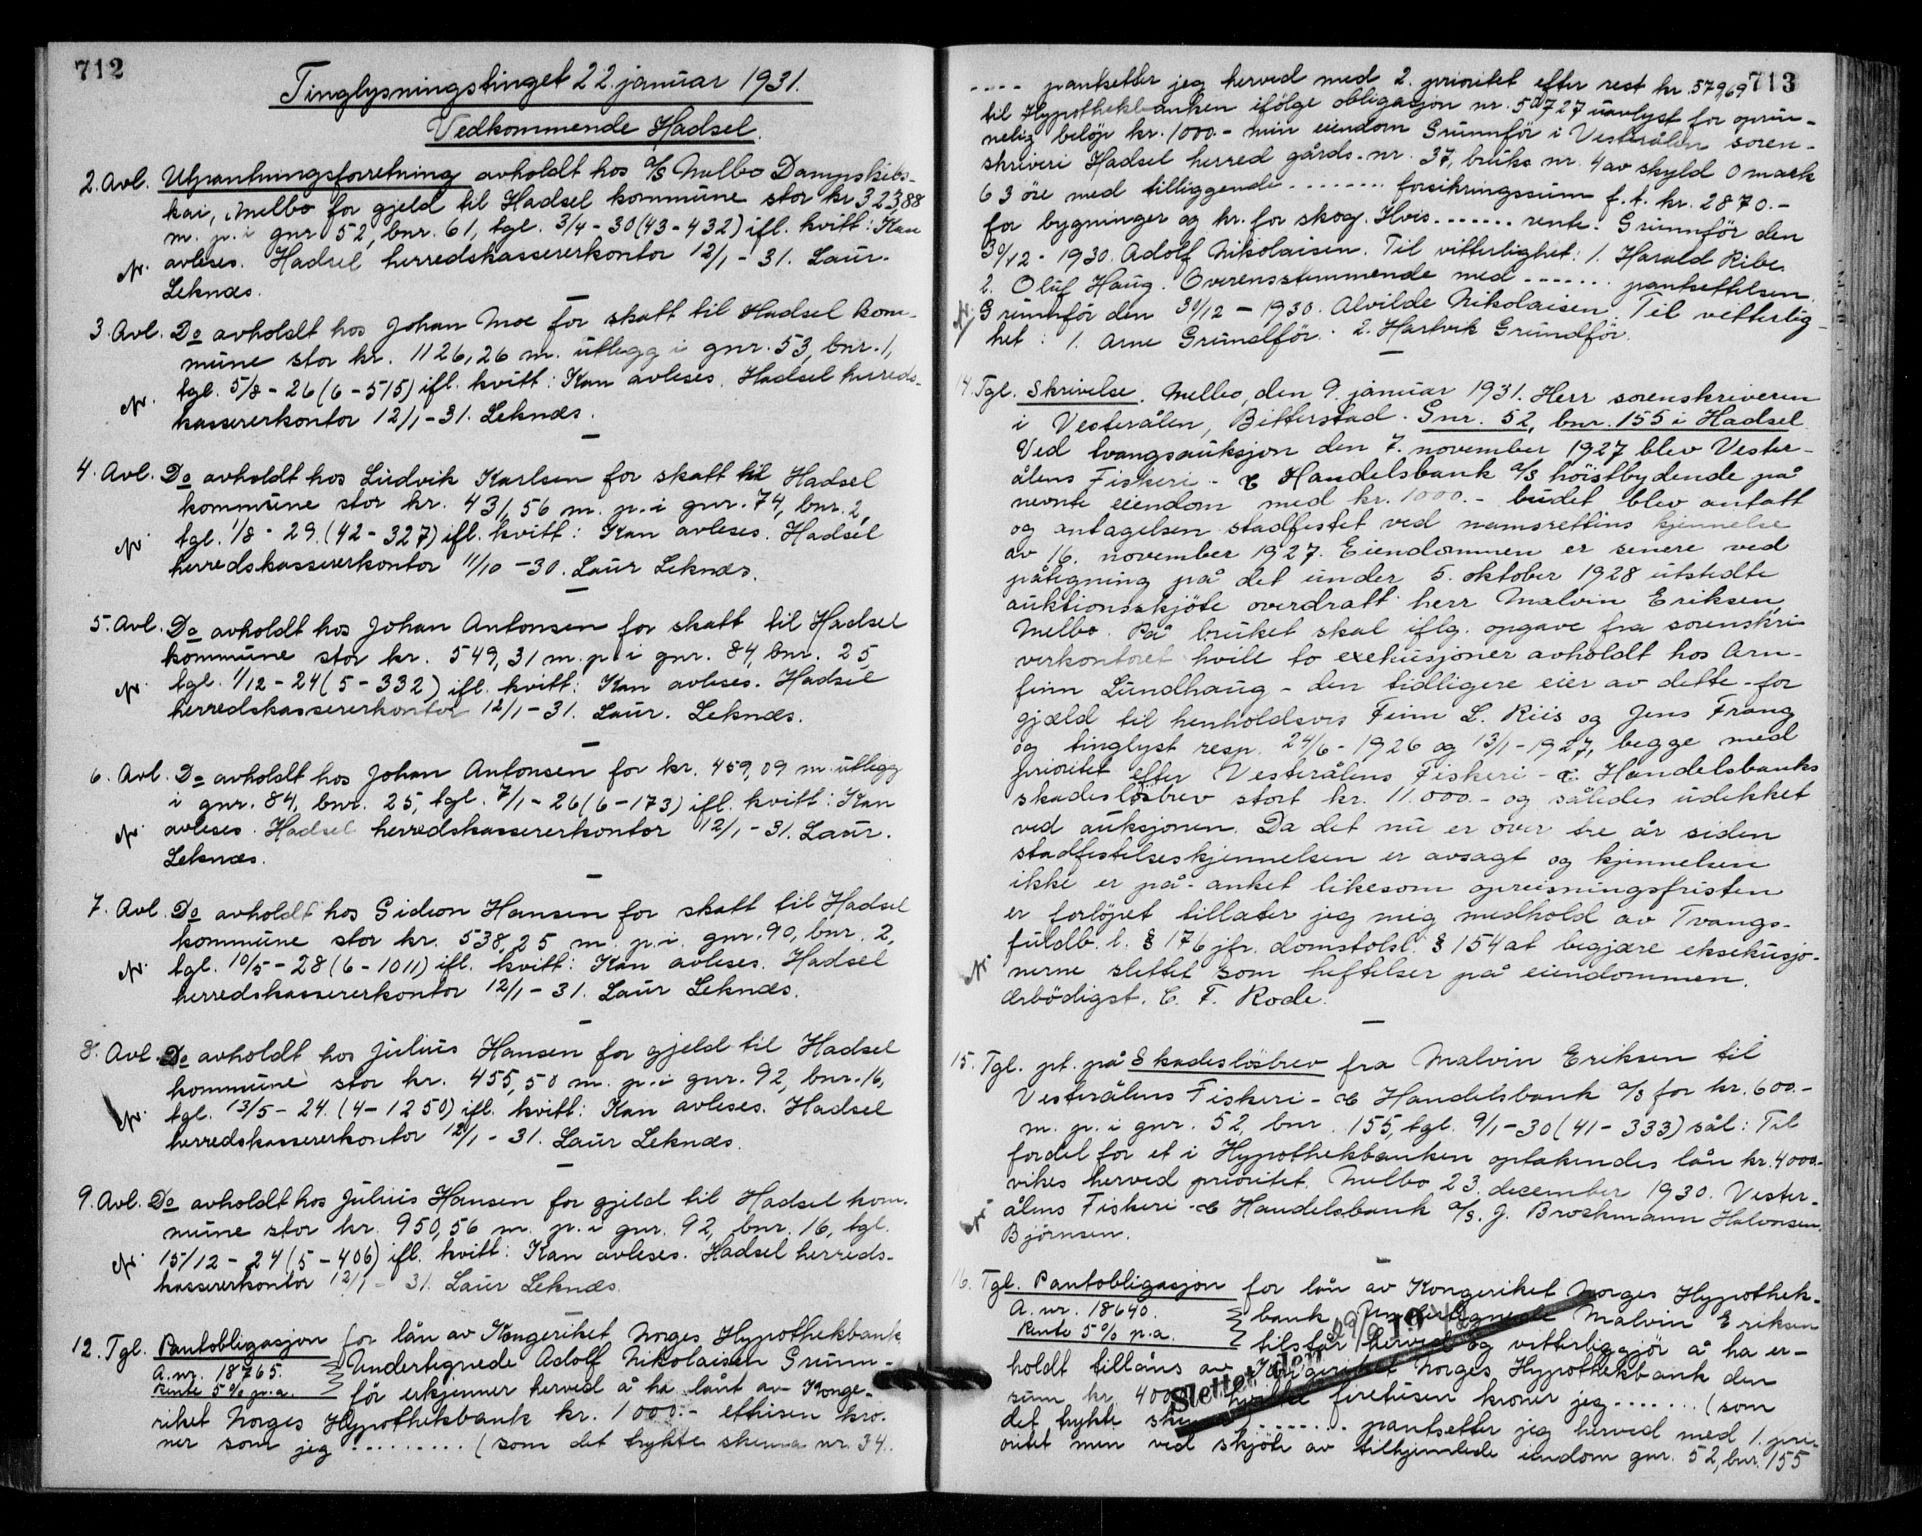 712
Tinglysningstinget 22. januar 1931.
Vedkommende Hadsel.
2. Avl. Utpantningsforretning avholdt hos A/S Melbo Dampskibs-
kai, Melbo for gjeld til Hadsel kommune stor kr 323,88
m. p. i gnr 52, bnr. 61, tgl. 3/4-30 (43-432) ifl. kvitt: Kan
avleses. Hadsel herredskassererkontor 12/1-31. Laur.
Leknæs.
3. Avl. Do avholdt hos Johan Moe for skatt til Hadsel kom-
mune stor kr. 1126,26 m. utlegg i gnr. 53, bnr. 1,
tgl. 5/8-26 (6-515) ifl. kvitt: Kan avleses. Hadsel herreds-
kassererkontor 12/1-31. Leknæs.
4. Avl. Do avholdt hos Ludvik Karlsen for skatt til Hadsel
kommune stor kr. 431,56 m. p. i gnr. 74, bnr. 2,
tgl. 1/8-29. (42-327) ifl. kvitt: Kan avleses. Hadsel
herredskassererkontor 11/10-30. Laur Leknæs.
5. Avl. Do avholdt hos Johan Antonsen for skatt til Hadsel
kommune stor kr. 549,31 m. p. i gnr. 84, bnr. 25,
tgl. 1/12-24 (5-332) ifl. kvitt: Kan avleses. Hadsel
herredskassererkontor 12/1-31. Laur. Leknæs.
6. Avl. Do avholdt hos Johan Antonsen for kr. 459,09 m. utlegg
i gnr. 84, bnr. 25, tgl. 7/1-26 (6-173) ifl. kvitt: Kan
avleses. Hadsel herredskassererkontor 12/1-31. Laur.
Leknæs.
7. Avl. Do avholdt hos Gideon Hansen for skatt til Hadsel
kommune stor kr. 538,25 m. p. i. gnr. 90, bnr. 2,
tgl. 10/5-28 (6-1011) ifl. kvitt: Kan avleses. Hadsel
herredskassererkontor 12/1-31. Laur Leknæs.
8. Avl. Do avholdt hos Julius Hansen for gjeld til Hadsel
kommune stor kr. 455,50 m. p. i gnr. 92, bnr. 16,
tgl. 13/5-24. (4-1250) ifl. kvitt: Kan avleses. Hadsel
herredskassererkontor 12/1-31. Laur Leknæs.
9. Avl. Do avholdt hos Julius Hansen for gjeld til Hadsel kom-
mune stor kr. 950,56 m. p. i gnr. 92, bnr. 16, tgl.
15/12-24 (5-406) ifl. kvitt: Kan avleses. Hadsel herreds-
kassererkontor 12/1-31. Laur Leknæs.
12. Tgl. Pantobligasjon for lån av Kongeriket Norges Hypothekbank
A. nr. 18765. Undertegnede Adolf Nikolaisen Grunn-
Rente 5% p.a. för erkjenner herved å ha lånt av Konge-
riket Norges Hypothekbank kr. 1000.- ettusen kro-
ner som jeg .......... (som det trykte skema nr. 34.
713
.... pantsetter jeg herved med 2. prioritet efter rest kr. 579,69
til Hypothekbanken ifölge obligasjon nr. uavlyst for oprin-
nelig belöp kr. 1000.- min eiendom Grunnför i Vesterålen soren-
skriveri Hadsel herred gårds-nr. 37, bruks nr. 4 av skyld 0 mark
63 öre med tilliggende ........ forsikringssum f. t. kr. 2870.-
for bygninger og kr. for skog. Hvis ....... rente. Grunnför den
30/12-1930. Adolf Nikolaisen. Til vitterlighet: 1. Harald Ribe.
2. Oluf Haug. Overensstemmende med ....... pantsettelsen.
Grunnför den 30/12-1930. Alvilde Nikolaisen. Til vitterlig-
het: 1. Arne Grundför. 2. Hartvik Grundför.
14. Tgl. Skrivelse. Melbo, den 9. januar 1931. Herr sorenskriveren
i Vesterålen, Bitterstad. Gnr. 52, bnr. 155 i Hadsel.
Ved tvangsauksjon den 7. november 1927 blev Vester-
ålens Fiskeri- & Handelsbank A/S höistbydende på
nevnte eiendom med kr. 1000.- budet blev antatt
og antagelsen stadfestet ved namsrettins kjennelse
av 16. november 1927. Eiendommen er senere ved
påtegning på det under 5. oktober 1928 utstedte
auktionsskjöte overdratt herr Malvin Eriksen,
Melbo. På bruket skal iflg. opgave fra sorenskri-
verkontoret hvile to exekusjoner avholdt hos Arn-
finn Lundhaug - den tidligere eier av dette - for
gjæld til henholdsvis Finn L. Riis og Jens Frang
og tinglyst resp. 24/6-1926 og 13/1-1927, begge med
prioritet efter Vesterålens Fiskeri- & Handelsbanks
skadeslösbrev stort kr. 11.000.- og således udekket
ved auksjonen. Da det nu er over tre år siden
stadfestelseskjennelsen er avsagt og kjennelsen
ikke er på-anket likesom opreisningsfristen
er forlöpet tillater jeg mig medhold av Tvangs-
fuldb. l. § 176 jfr. domstolsl. § 154 at begjære eksekusjo-
nerne slettet som heftelser på eiendommen.
Ærbödigst. C. F. Rode.
15. Tgl. pt. på Skadeslösbrev fra Malvin Eriksen til
Vesterålens Fiskeri- & Handelsbank A/S for kr. 600.-
m. p. i gnr. 52, bnr. 155, tgl. 9/1-30 (41-333) sål: Til
fordel for et i Hypothekbanken optakendes lån kr. 4000.-
vikes herved prioritet. Melbo 23. december 1930. Vester-
ålens Fiskeri- & Handelsbank A/S. J. Brockmann Halvorsen.
Björnsen.
16. Tgl. Pantobligasjon for lån av Kongeriket Norges Hypothek-
A. nr. 18640. bank. Undertegnede Malvin Eriksen
Rente 5% p.a. tilstår herved og vitterliggjör å ha er-
holdt tillåns av Kongeriket Norges Hypothekbank den
Slettet den
sum kr. 400 firetusen kroner jeg ....... (som
det trykte skema ....... pantsetter jeg herved med 1. pri-
oritet men ved skjöte av tilhjemlede eiendom gnr. 52, bnr. 155